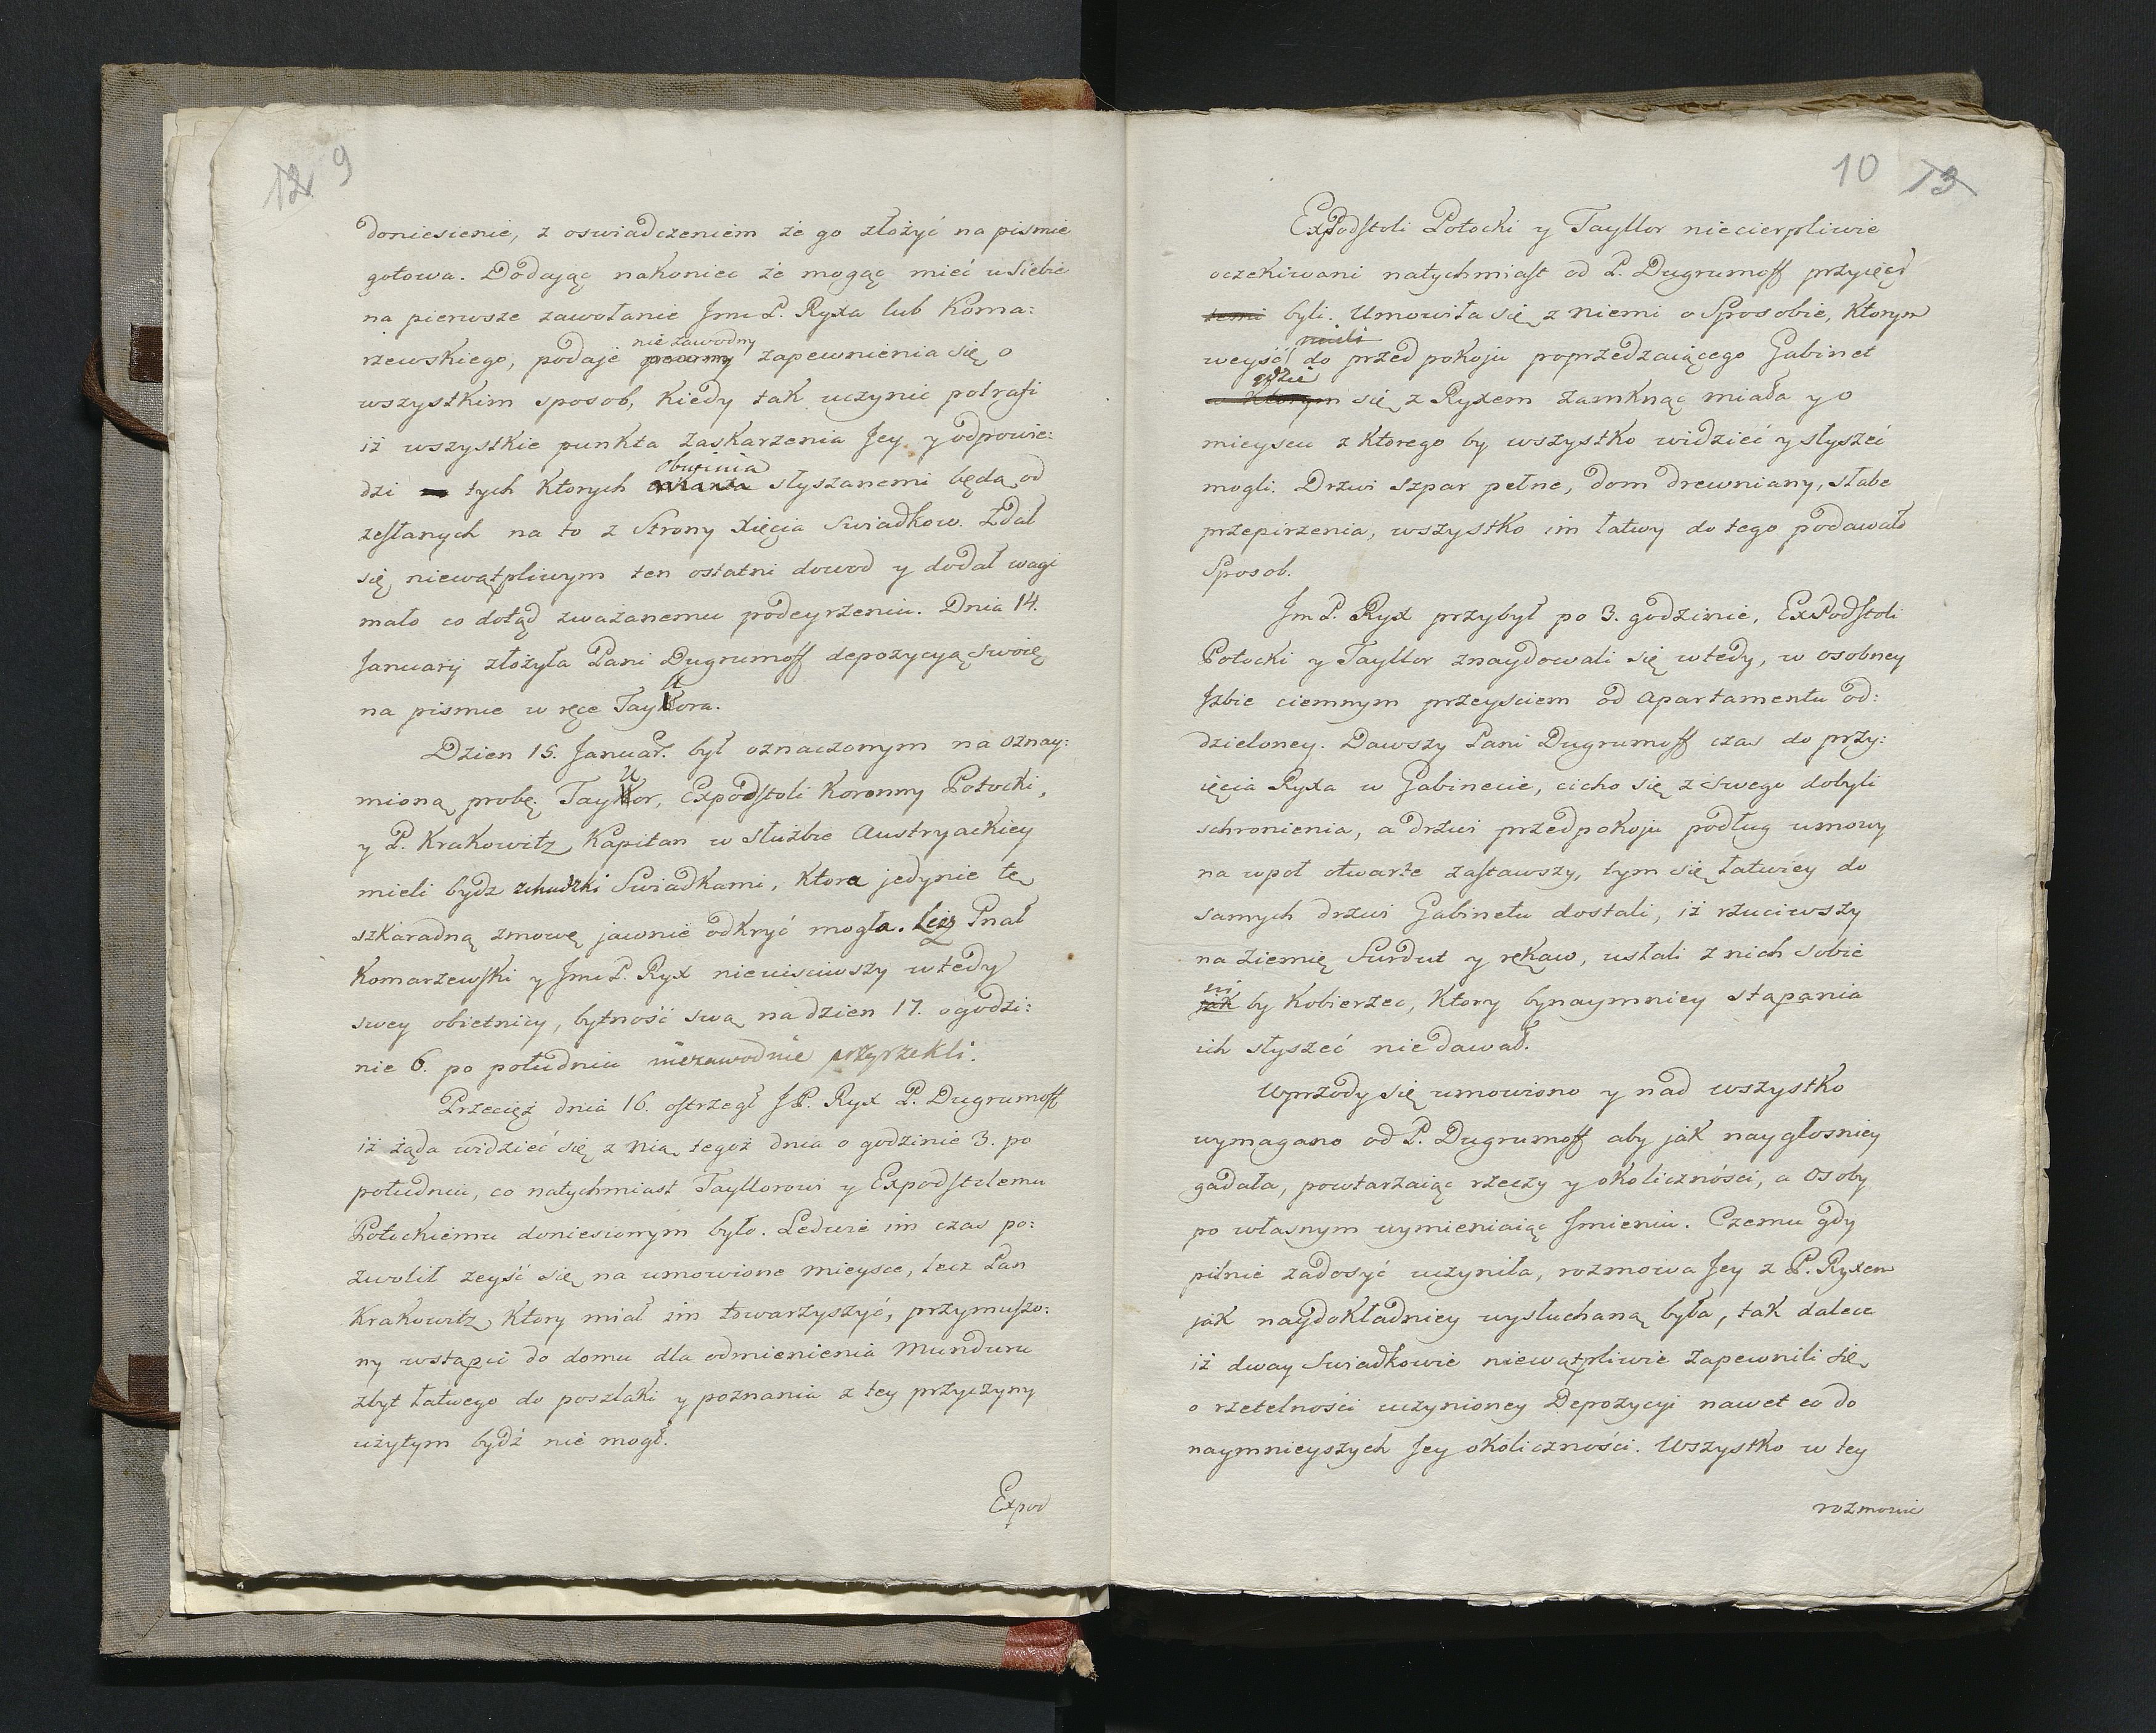 12 9
doniesienie, z oswiadczeniem że go złożyć na pismie
gotowa. Dodaiąc nakoniec że mogąc mieć u siebie
na pierwsze zawołanie Jmc P. Ryxa lub Koma:
rzewskiego, podaje pewny niezawodny zapewnienia się o
wszystkim sposob, kiedy tak uczynic potrafi
iż wszystkie punkta zaskarzenia Jey y odpowie:
dzi tych ktorych obwinia słyszanemi będą od
zesłanych na to z Strony Xięcia Swiadkow. Zdał
się niewątpliwym ten ostatni dowod y dodał wagi
mało co dotąd zważanemu podeyrzeniu. Dnia 14.
Januarij złożyła Pani Dugrumoff depozycyą swoię
na pismie w ręce Tayllora.
Dzien 15. Januar. był oznaczonym na oznay:
mioną probę. Tayllor, Expodstoli Koronny Potocki,
y P. Krakowitz, Kapitan w służbie Austryackiey
mieli bydz schadzki Swiadkami, ktora jedynie tę
szkaradną zmowę jawnie odkryć mogła. Lecz Pnał
Komarzewski y Jmc P. Ryx nieuisciwszy wtedy
swey obietnicy, bytność swą na dzien 17. o godzi:
nie 6. po południu niezawodnie przyrzekli.
Przecięż dnia 16. ostrzegł JP. Ryx P. Dugrumoff
iż żąda widzieć się z nią tegoż dnia o godzinie 3. po
południu, co natychmiast Tayllorowi y Expodstolemu
Potockiemu doniesionym było. Ledwie im czas po:
zwolił zeyść się na umowione mieysce, lecz Pan
Krakowitz, ktory miał im towarzyszyć, przymuszo:
ny wstąpić do domu dla odmienienia Munduru
zbyt łatwego do poszlaki y poznania z tey przyczyny
użytym bydź nie mogł.
Expod
10 13
ExPodstoli Potocki y Tayllor niecierpliwie
oczekiwani natychmiast od P. Dugrumoff przyięci
temi byli. Umowiła się z niemi o Sposobie, ktorym
weyść mieli do przedpokoju poprzedzaiącego Gabinet
w ktorym gdzie się z Ryxem zamknąć miała y o
mieyscu z ktorego by wszystko widzieć y słyszeć
mogli. Drzwi szpar pełne, dom drewniany, słabe
przepirzenia, wszystko im łatwy do tego podawało
Sposob.
Jm P. Ryx przybył po 3. godzinie, ExPodstoli
Potocki y Tayllor znaydowali się wtedy, w osobney
Jzbie ciemnym przeysciem od Apartamentu od:
dzieloney. Dawszy Pani Dugrumoff czas do przy:
ięcia Ryxa w Gabinecie, cicho się z swego dobyli
schronienia, a drzwi przedpokoju podług umowy
na wpoł otwarte zastawszy, tym się łatwiey do
samych drzwi Gabinetu dostali, iż rzuciwszy
na ziemię Surdut y rękaw, usłali z nich sobie
jak ni by kobierzec, ktory bynaymniey stąpania
ich słyszeć nie dawał.
Wprzody się umowiono y nad wszystko
wymagano od P. Dugrumoff aby jak naygłosniey
gadała, powtarzaiąc rzeczy y okoliczności, a Osoby
po własnym wymieniaiąc Jmieniu. Czemu gdy
pilnie zadosyć uczyniła, rozmowa Jey z P. Ryxem
jak naydokładniey wysłuchaną była, tak dalece
iż dway Swiadkowie niewątpliwie zapewnili się
o rzetelności uczynioney Depozycyi nawet co do
naymnieyszych Jey okoliczności. Wszystko w tey
rozmowie